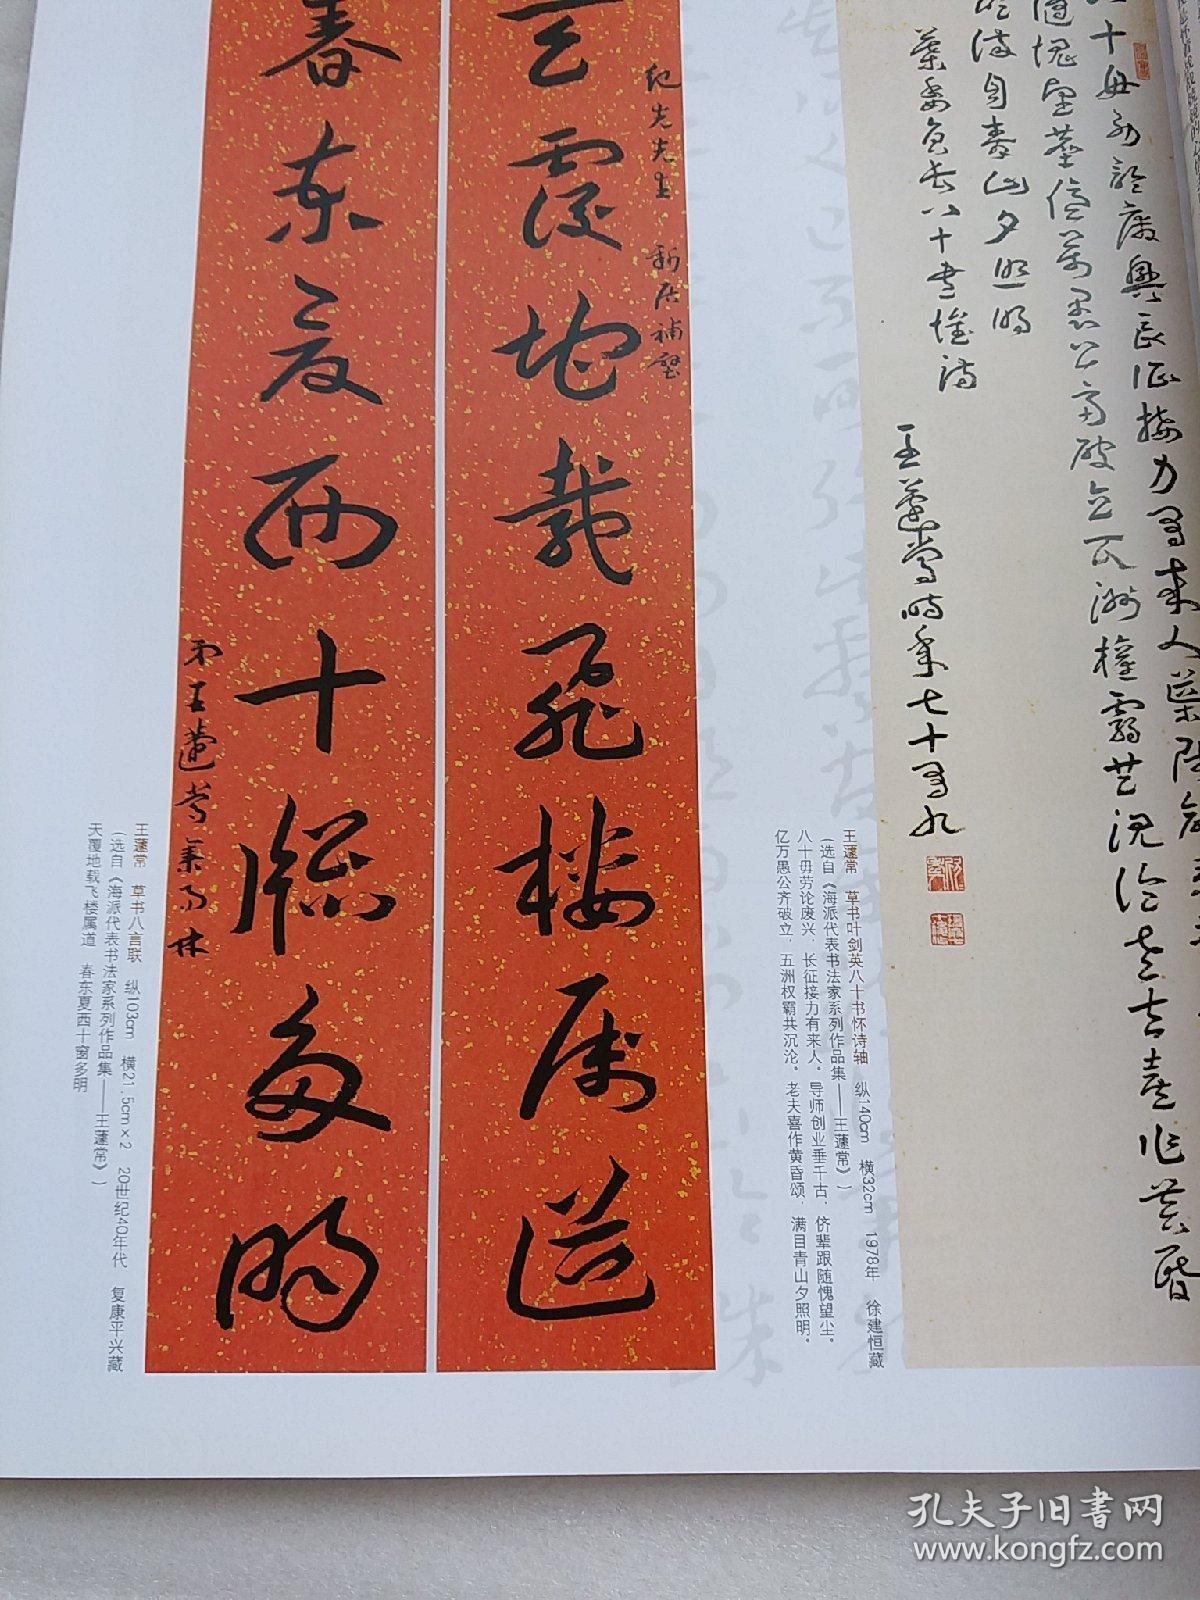 八十毋劳论废兴长征接力有来人
跟随愧望尘亿万愚公齐破立五洲权霸共沉沦老夫喜作黄昏
颂满目青山夕照明
叶委员长八十书怀诗
王蘧常时年七十有九
天覆地载飞楼属道
纪先先生 新居补壁
春东夏西十窗多明
弟王蘧常
王蘧常 草书叶剑英八十书怀诗轴 纵140cm 横32cm 1978年 徐建恒藏
（选自《海派代表书法家系列作品集——王蘧常》）
八十毋劳论废兴，长征接力有来人。导师创业垂千古，侪辈跟随愧望尘。
亿万愚公齐破立，五洲权霸共沉沦。老夫喜作黄昏颂，满目青山夕照明。
王蘧常 草书八言联 纵103cm 横21.5cm×2 20世纪40年代 复康平兴藏
（选自《海派代表书法家系列作品集——王蘧常》）
天覆地载飞楼属道 春东夏西十窗多明
孔夫子旧书网
www.kongfz.com